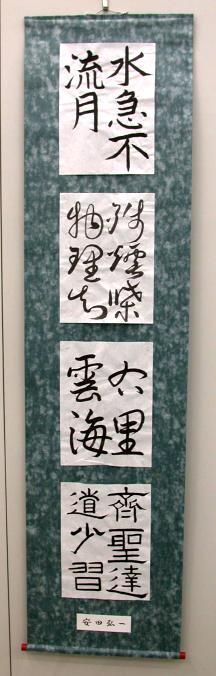 水急不
流月
物理
里
雲海
齊聖達
道少習
安田弘一